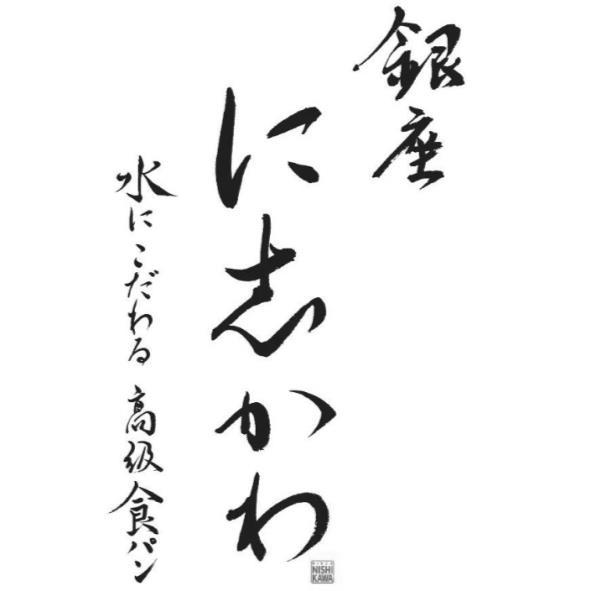 銀座
に志かわ
水にこだわる 高級食パン
NISHI
KAWA